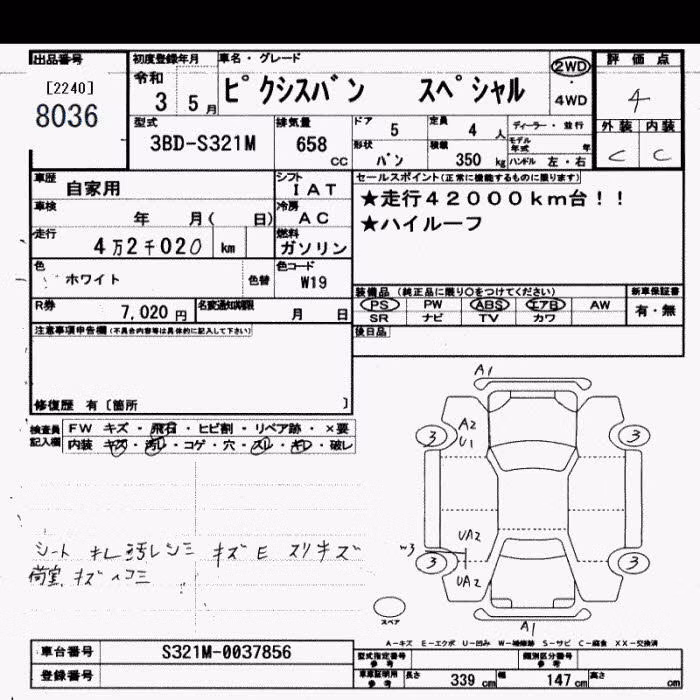 出品番号 初度登録年月 車名・グレード 2WD 評価点
[2240] 令和 ピクシスバン スペシャル ・ 4
8036 3 5月 4WD
型式 排気量 ドア 5 定員 4人 ディーラー・並行 外装 内装
3BD-S321M 658 CC 形状 バン 積載 350kg モデル年式 年 C C
ハンドル 左・右
車歴 自家用 シフト IAT セールスポイント(正常に機能するものに限ります)
車検 年 月( 日) 冷房 AC ★走行42000km台!!
走行 4万2千020 km 燃料 ガソリン ★ハイルーフ
色 ホワイト 色替 色コード W19
装備品 (純正品に限り〇をつけてください) 新車保証書
R券 7,020円 名変通知期限 月 日 PS PW ABS エアB AW 有・無
SR ナビ TV カワ
注意事項申告欄(不具合内容等は具体的に記入して下さい) 後日品
修復歴 有〔箇所 〕
検査員記入欄 FW キズ・飛石・ヒビ割・リペア跡・×要
内装 キズ・汚レ・コゲ・穴・スレ・キレ・破レ
A1
3 A2 3
U1
シート キレ 汚レシミ キズ E スリキズ UA2
荷室 キズ ヘコミ W3
3 UA2 3
スペア A1
A-キズ E-エクボ U-凹み W-補修跡 S-サビ C-腐食 XX-交換済
車台番号 S321M-0037856 型式指定番号 参考 類別区分番号 参考
登録番号 車庫証明用 参考 長さ 339cm 幅 147cm 高さ cm